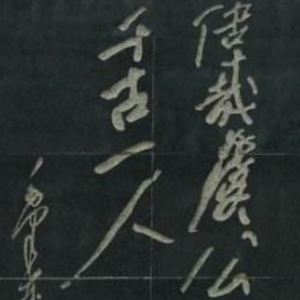 偉哉虞公
千古一人
毛泽东